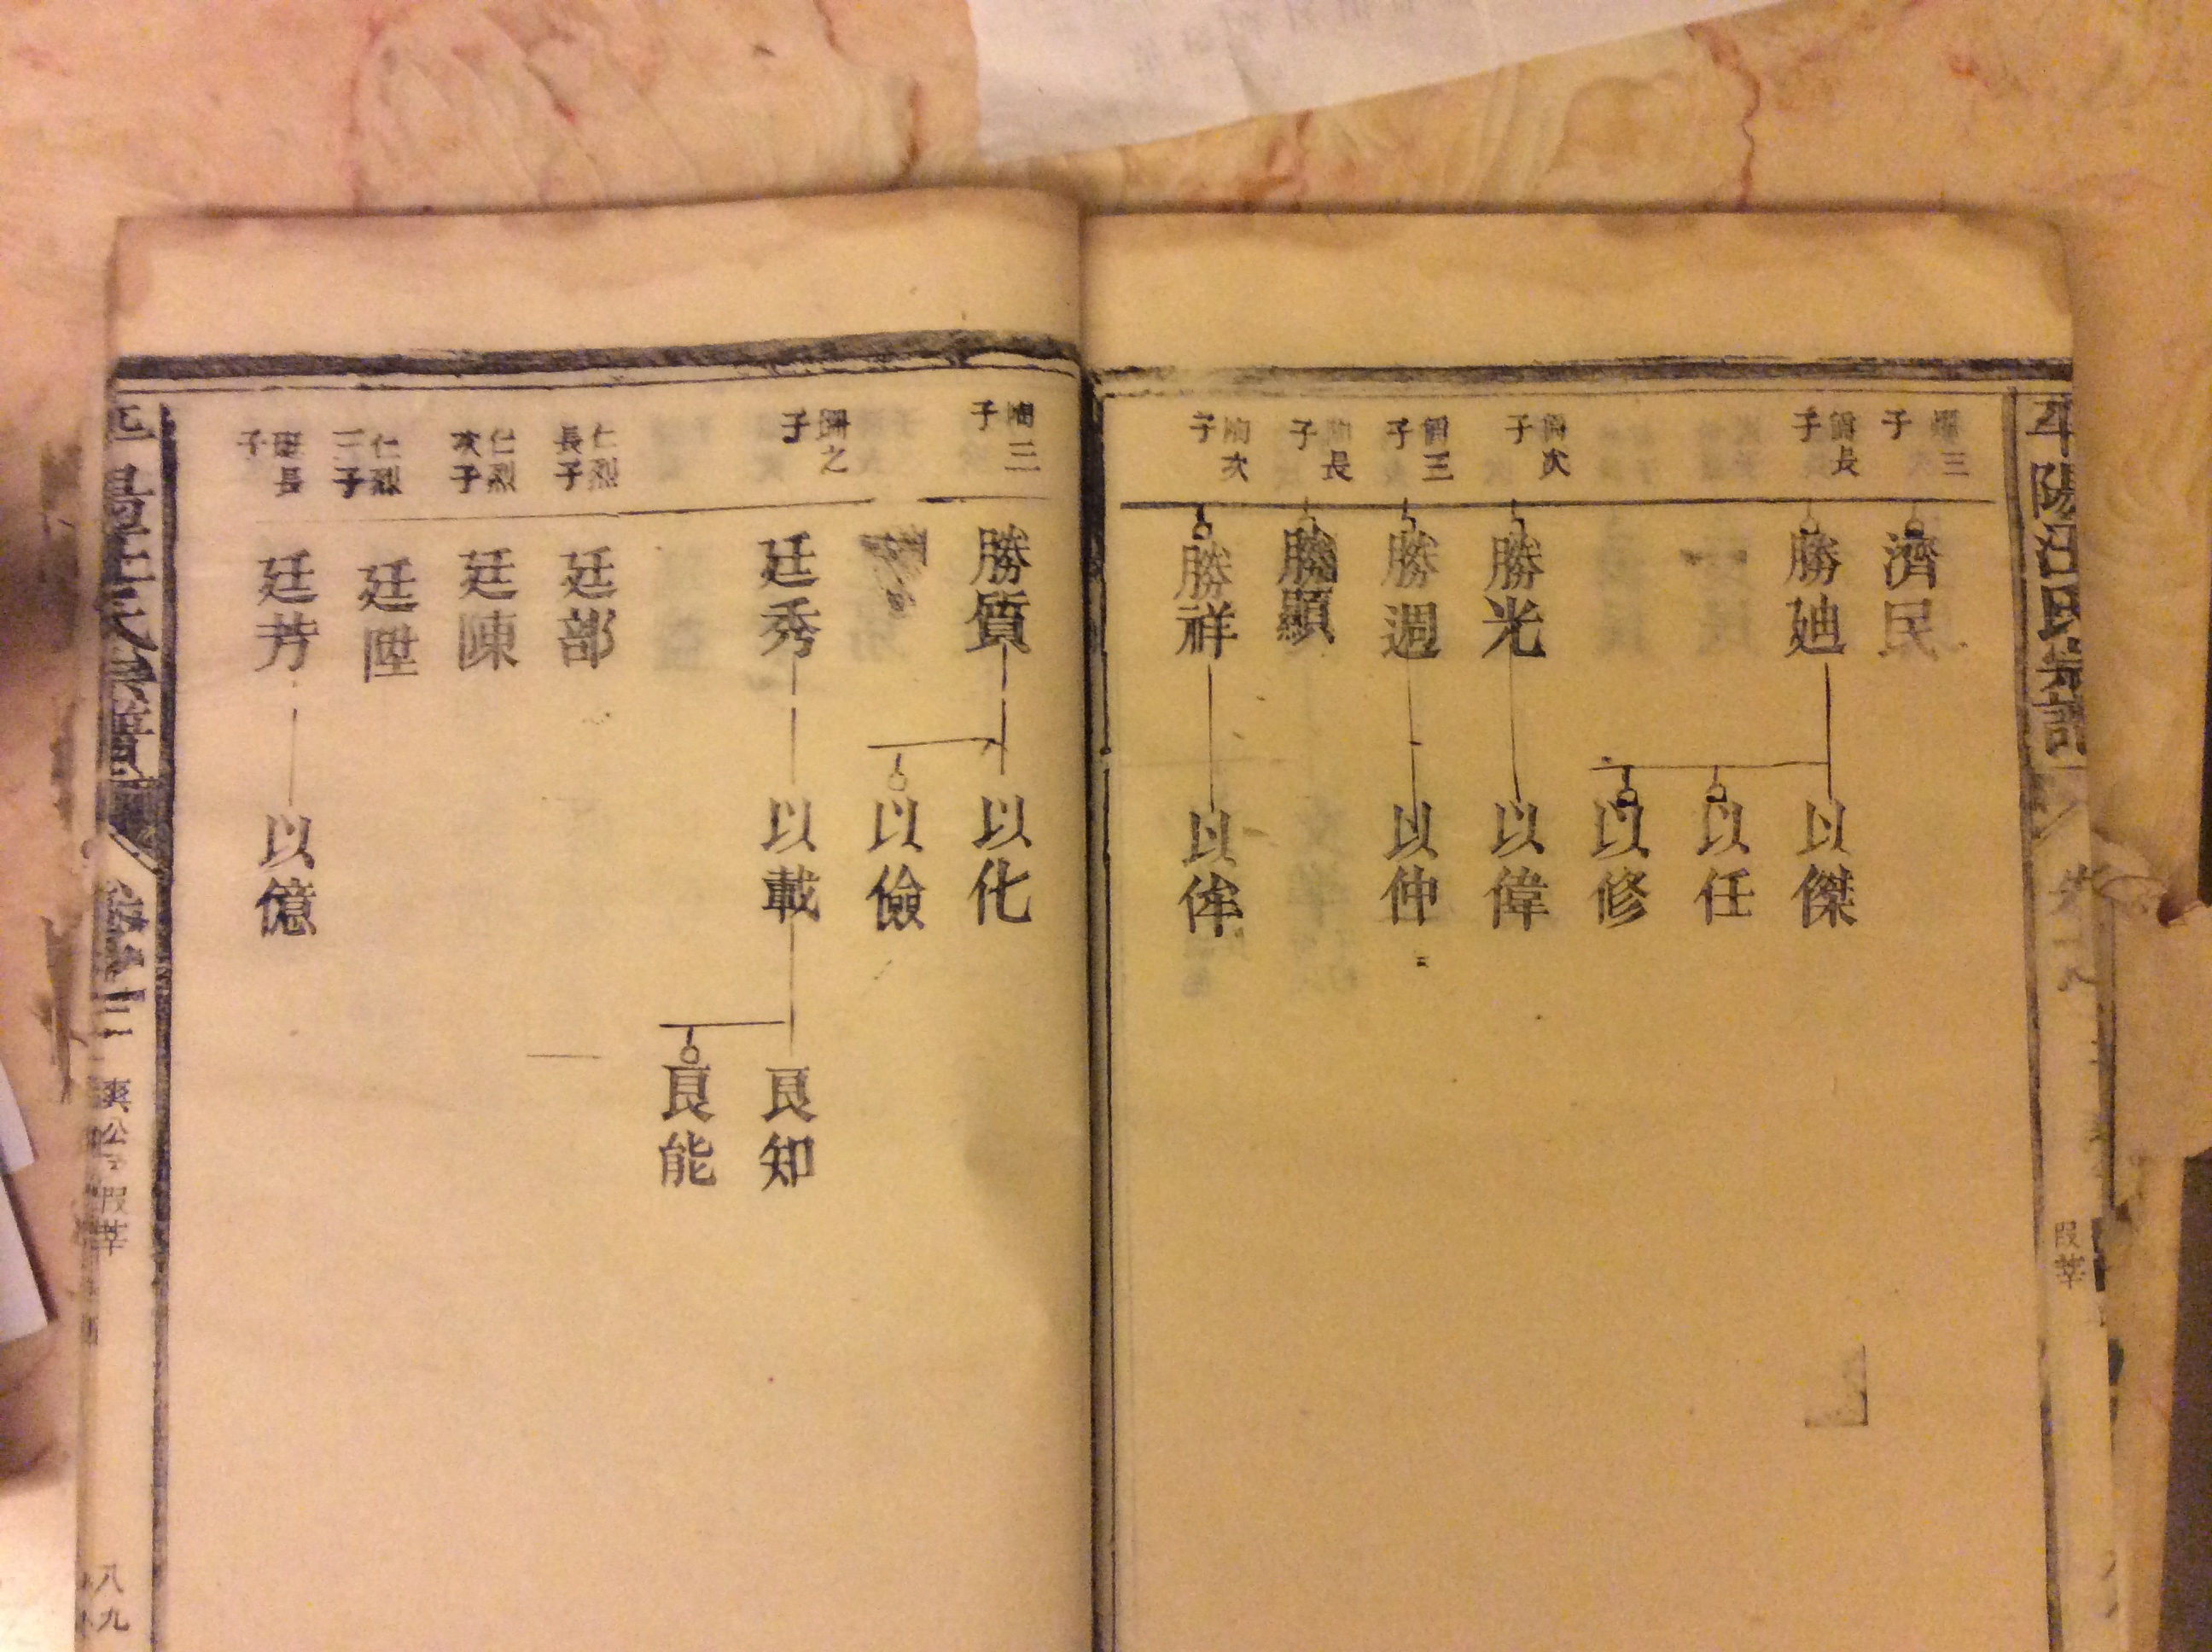 平陽汪氏宗譜
叚莘
三
子
濟民
長
子
勝廸
以傑
以任
以修
次
子
勝光
以偉
三
子
勝週
以仲
長
子
勝顯
次
子
勝祥
以侔
三
子
勝質
以化
以儉
之
子
廷秀
以載
良知
良能
仁烈
長子
廷部
仁烈
次子
廷陳
仁烈
三子
廷陞
長
子
廷芳
以億
卷
爽公
叚莘
八九